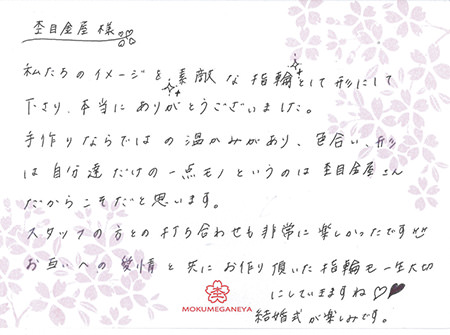 杢目金屋様
私たちのイメージを素敵な指輪として形にして
下さり、本当にありがとうございました。
手作りならではの温かみがあり、色合い、形
は自分達だけの一点モノというのは杢目金屋さん
だからこそだと思います。
スタッフの方との打ち合わせも非常に楽しかったです
お互いへの愛情と共にお作り頂いた指輪も一生大切
にしていきますね♡♥
結婚式が楽しみです。
MOKUMEGANEYA